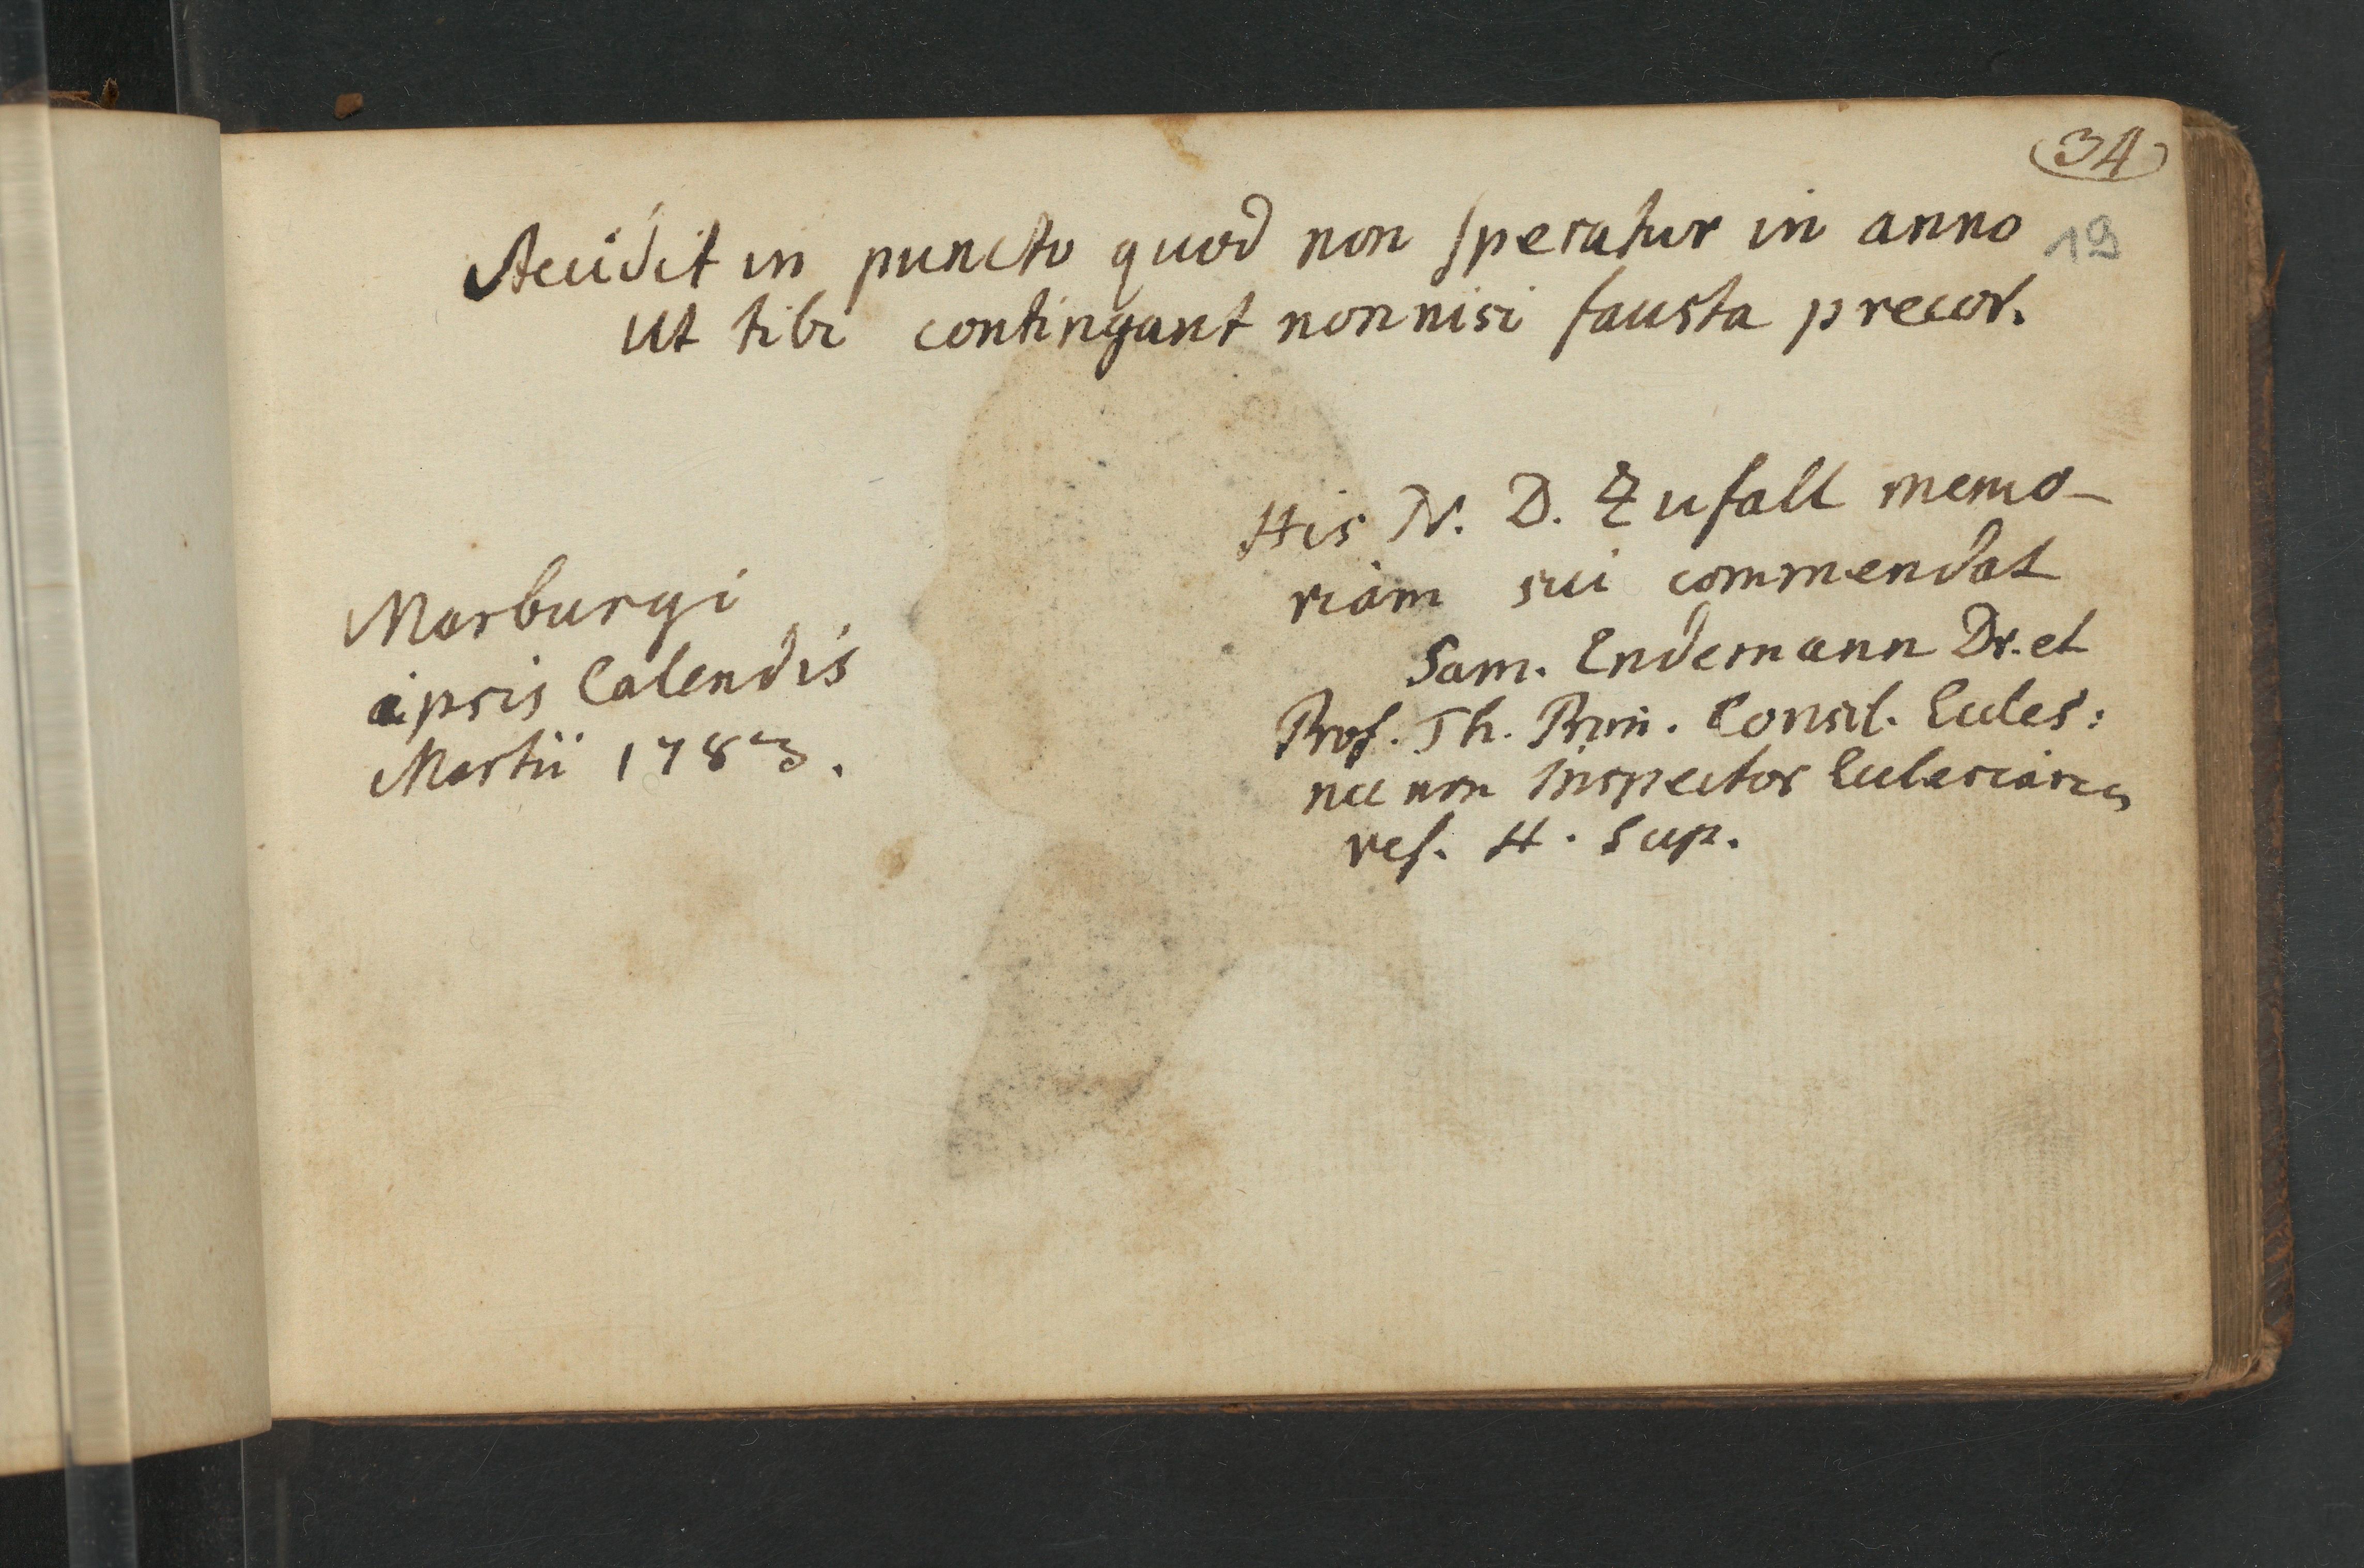 34
Accidit in puncto quod non speratur in anno
19
Ut tibi contingant nonnisi fausta precor.
His N. D. Zufall memo-
riam sui commendat
Sam. Endemann Dr. et
Prof. Th. Prim. Consil. Eccles:
nec non Inspector Ecclesiarum
ref. H. Sup.
Marburgi
ipsis Calendis
Martii 1783.